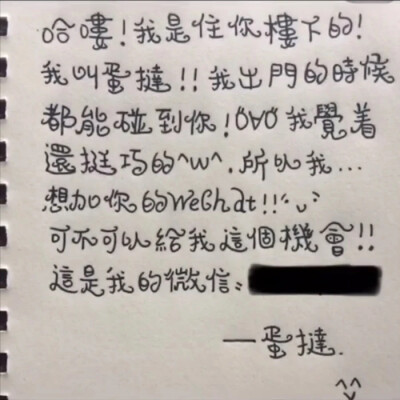 哈嘍!我是住你樓下的!
我叫蛋撻!!我出門的時候
都能碰到你!OvO我覺着
還挺巧的^w^.所以我...
想加你的WeChat!!
可不可以給我這個機會!!
這是我的微信:
一蛋撻.
^^